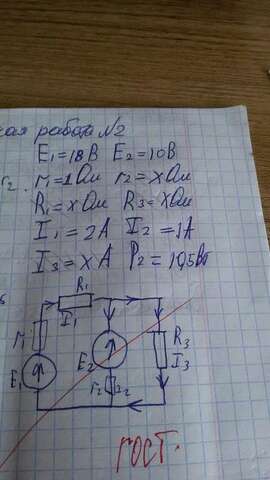 ная работа N2
E₁=18В E₂=10В
r₂. r₁=1Ом r₂=xОм
R₁=xОм R₃=xОм
I₁=2A I₂=1A
I₃=xA P₂=10,5Вт
R₁
I₁
r₁
E₁
E₂
r₂ I₂
R₃
I₃
ГОСТ.